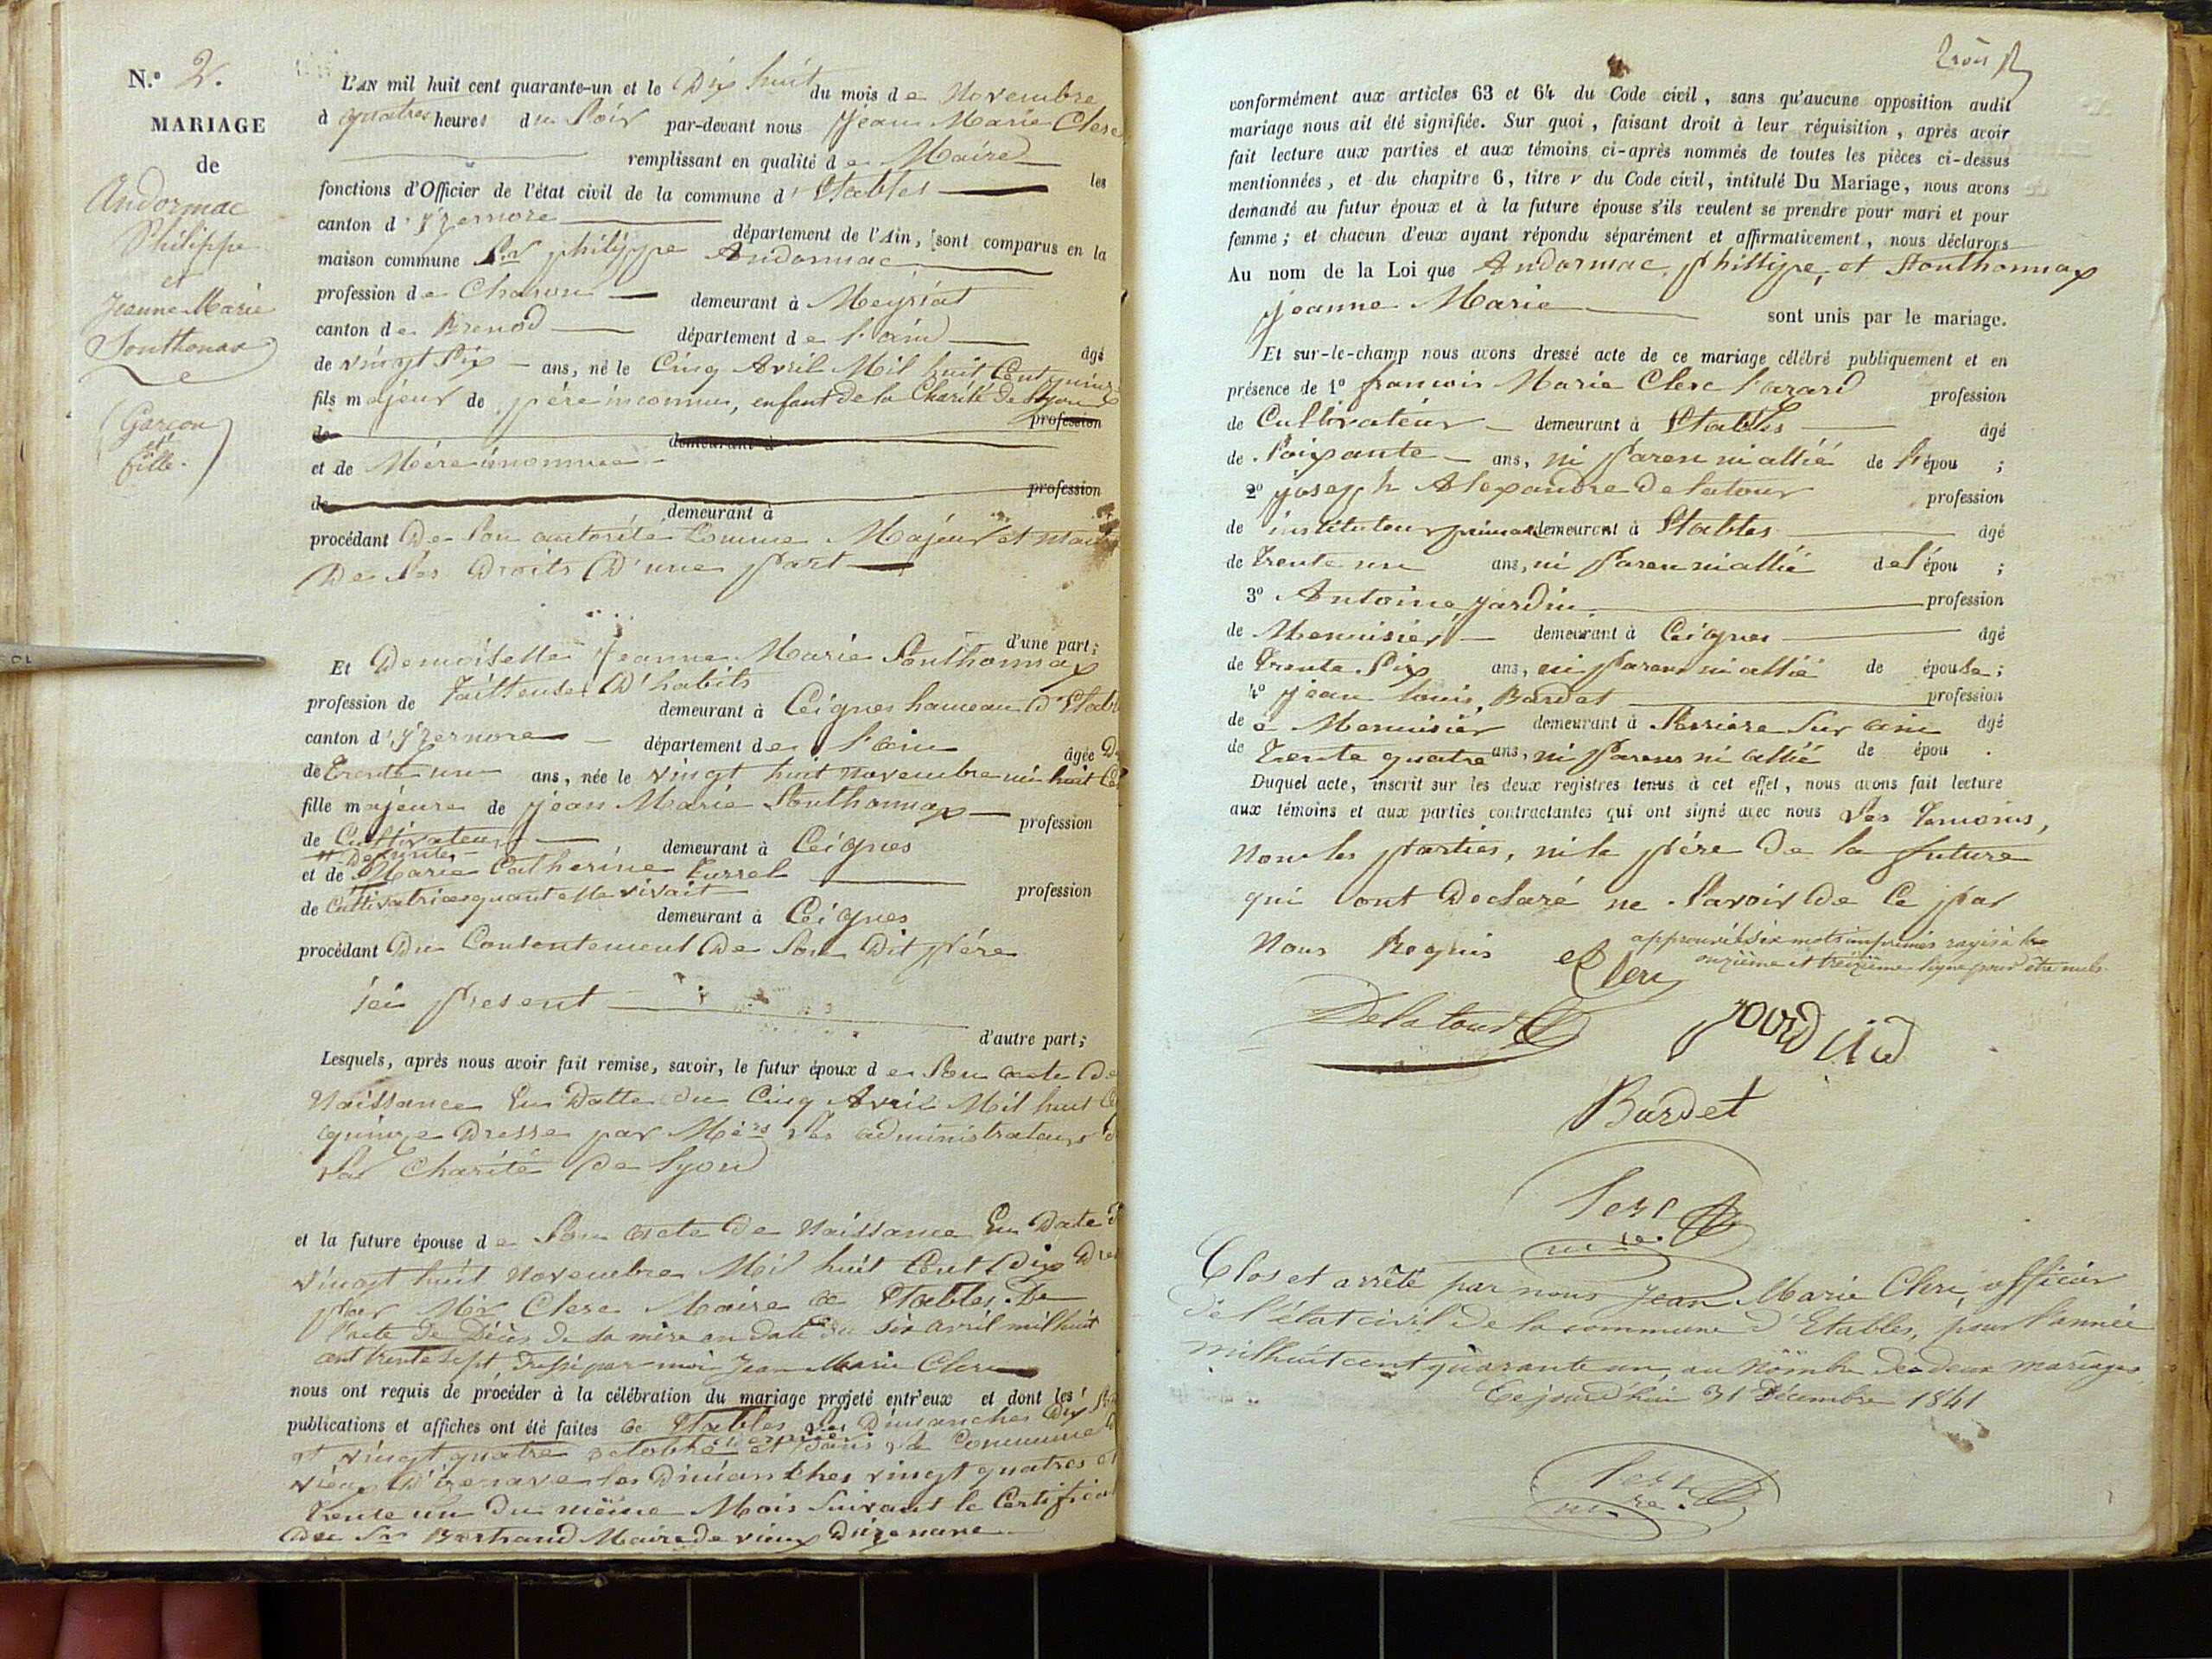 N.° 2.
MARIAGE
de
Andormac
Philippe
et
Jeanne Marie
Southonax
Garçon
et
fille.
L'AN mil huit cent quarante-un et le Dix huit du mois de Novembre
à quatres heures du Soir par-devant nous Jean Marie Clerc
remplissant en qualité de Maire les
fonctions d'Officier de l'état civil de la commune d' Etables
canton d' Yzernore département de l'Ain, sont comparus en la
maison commune Sr philippe Andormac
profession de Charon demeurant à Meyriat
canton de Brenod département de l'ain âgé
de vingt Six ans, né le Cinq Avril Mil huit Cent quinze
fils majeur de père inconnu, enfant de la Charité de Lyon
de demeurant à profession
et de Mère inconnue
de demeurant à profession
procédant De Son autorité Comme Majeur et Maitre
De Ses Droits D'une part
d'une part;
Et Demoiselle Jeanne Marie Southonnax
profession de Tailleuse D'habits demeurant à Ceignes hameau d'Etables
canton d' Yzernore département de l'ain âgée De
de trente un ans, née le vingt huit novembre mil huit Cent
fille majeure de Jean Marie Southonnax profession
de Cultivateur demeurant à Ceignes
et de Defunte Marie Catherine Turrel profession
de Cultivatrice quant elle vivait demeurant à Ceignes
procédant Du Consentement De Son Dit père
ici présent
d'autre part;
Lesquels, après nous avoir fait remise, savoir, le futur époux de Son acte De
Naissance En Datte du Cinq Avril Mil huit Cent
quinze Dresse par Mérs les administrateurs de
la Charité de Lyon
et la future épouse de Son acte de Naissance En Date du
vingt huit Novembre Mil huit Cent Dix Dressé
par Mr Clerc Maire a Etables. De
l'acte de Décès de sa mère an date du six avril mil huit
cent trente sept dressé par moi Jean Marie Clerc
nous ont requis de procéder à la célébration du mariage projeté entr'eux et dont les
publications et affiches ont été faites a Etables les Dimanches Dix Sept
et vingt quatre octobre dernier et Dans la Commune de
vieux D'izenave les Dimanches vingt quatres et
trente un Du même Mois Suivant le Certificat
de Sr Bertrand Maire de vieux Dizenave
Trois
conformément aux articles 63 et 64 du Code civil, sans qu'aucune opposition audit
mariage nous ait été signifiée. Sur quoi, faisant droit à leur réquisition, après avoir
fait lecture aux parties et aux témoins ci-après nommés de toutes les pièces ci-dessus
mentionnées, et du chapitre 6, titre v du Code civil, intitulé Du Mariage, nous avons
demandé au futur époux et à la future épouse s'ils veulent se prendre pour mari et pour
femme; et chacun d'eux ayant répondu séparément et affirmativement, nous déclarons
Au nom de la Loi que Andormac, phillipe, et Southonnax
Jeanne Marie sont unis par le mariage.
Et sur-le-champ nous avons dressé acte de ce mariage célébré publiquement et en
présence de 1° francois Marie Clerc profession
de Cultivateur demeurant à Etables âgé
de Soixante ans, ni Paren ni allié de l'épou ;
2° Joseph Alexandre Delatour profession
de instituteur primaire demeurant à Etables âgé
de Trente un ans, ni Paren ni allié de l'épou ;
3° Antoine Jardin profession
de Menuisier demeurant à Ceignes âgé
de Trente Six ans, ni Paren ni allié de épouse;
4° Jean Louis, Bardet profession
de e Menuisier demeurant à Serriere Sur ain âgé
de Trente quatre ans, ni Paren ni allié de épou .
Duquel acte, inscrit sur les deux registres tenus à cet effet, nous avons fait lecture
aux témoins et aux parties contractantes qui ont signé avec nous Les Temoins,
Non les parties, ni le père de la future
qui ont Declaré ne Savoir De Ce par
Nous Requis
approuvé six mots imprimés rayés à la
onzième et treizième ligne pour être nuls
Clerc
Delatour
Jourdin
Bardet
Clerc
mre.
Clos et arrêté par nous Jean Marie Clerc, officier
de l'état civil de la commune d'Etables, pour l'année
mil huit cent quarante un, au Nombre de deux mariages
Ce jourd'hui 31 Décembre 1841
Clerc
mre.